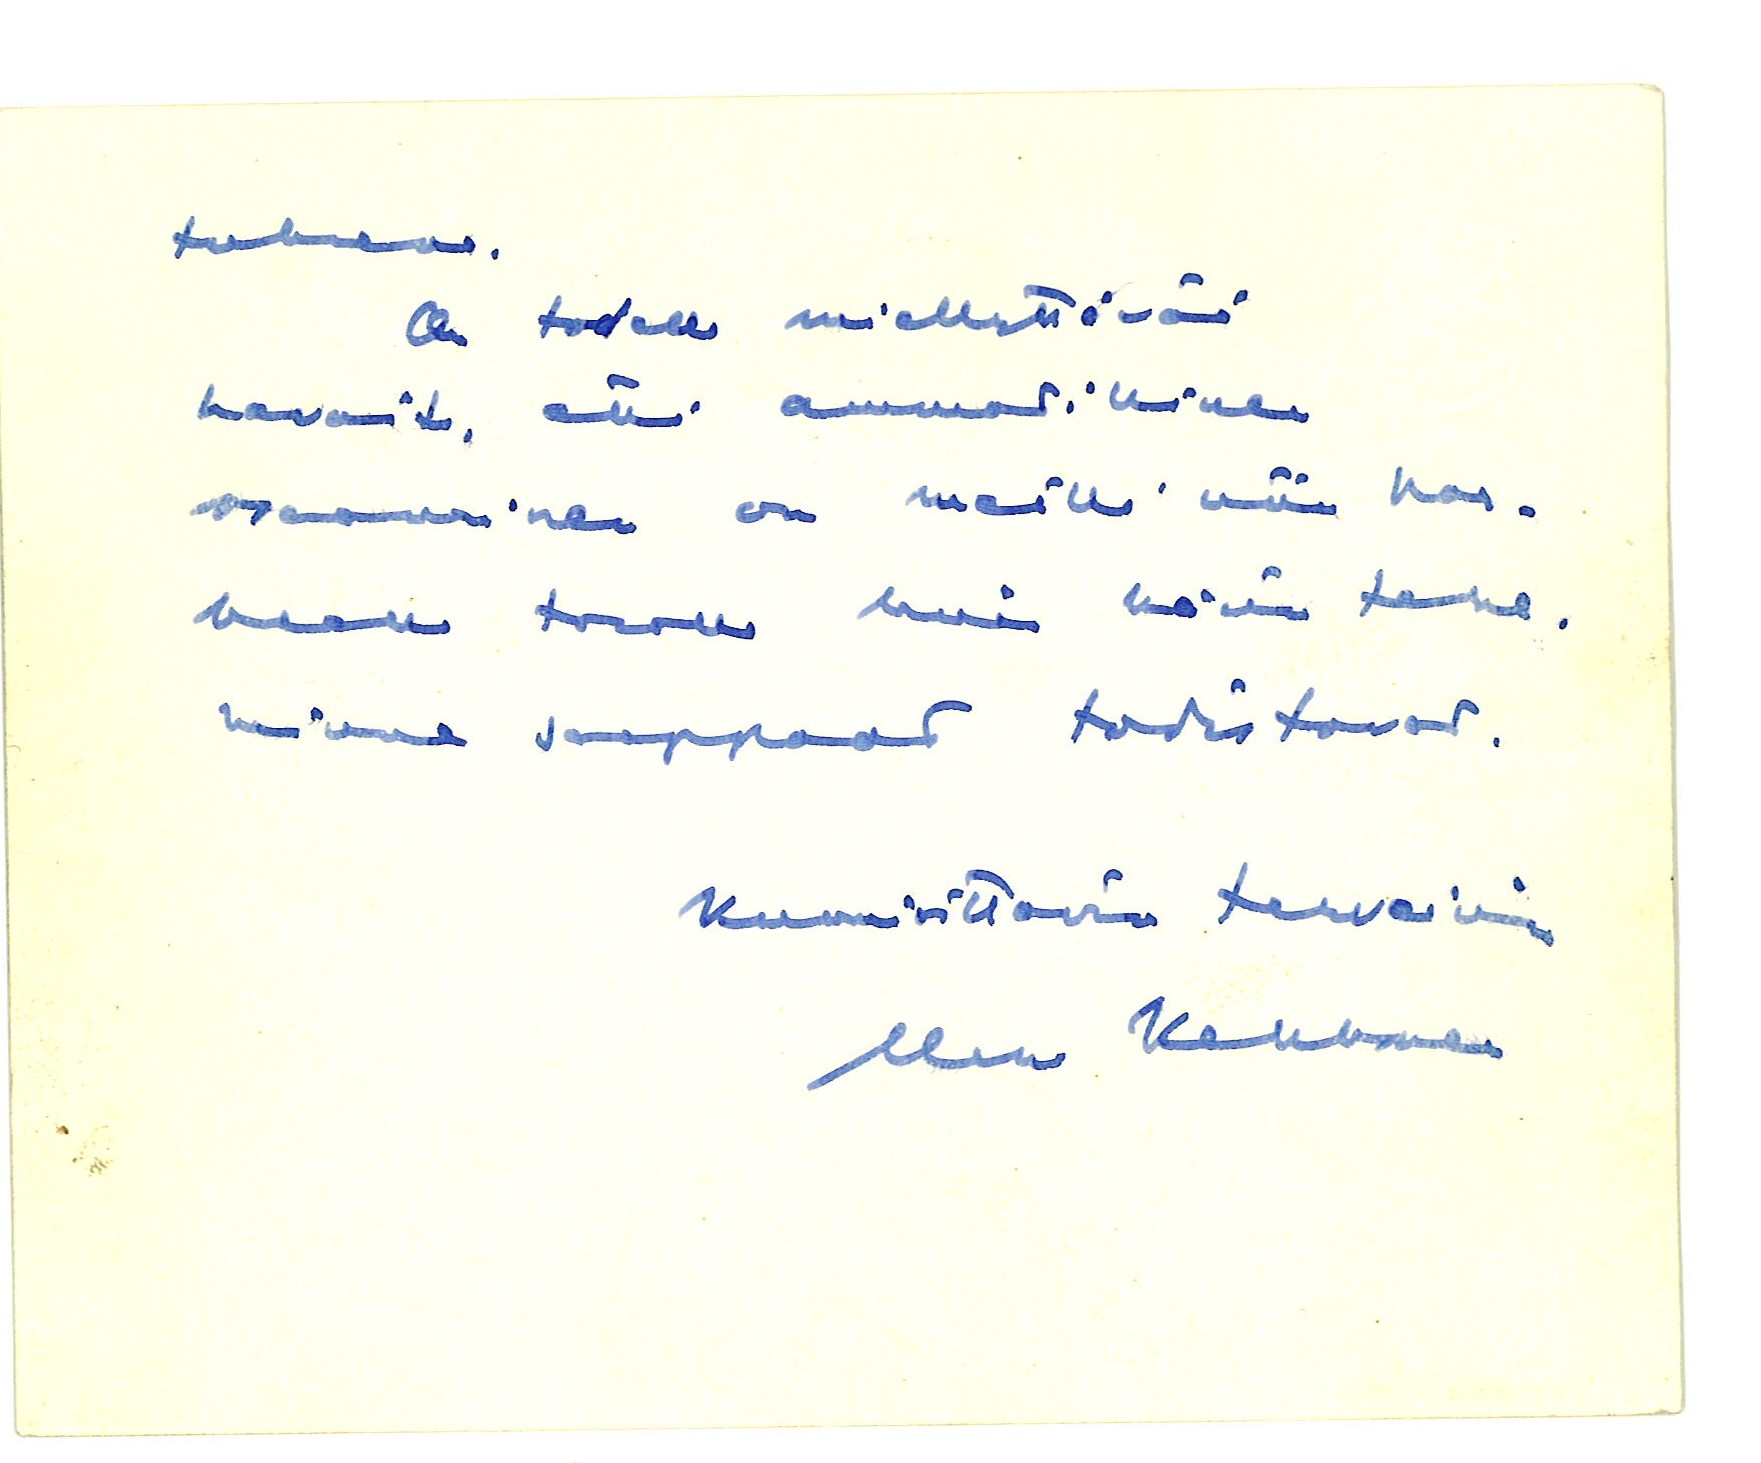 tukeaa.
On todella miellyttävää
havaita, että ammatillinen
osaaminen on meillä näin kor-
kealla tasolla kuin nämä teke-
männe saappaat todistavat.
Kunnioittavin terveisin
Urho Kekkonen